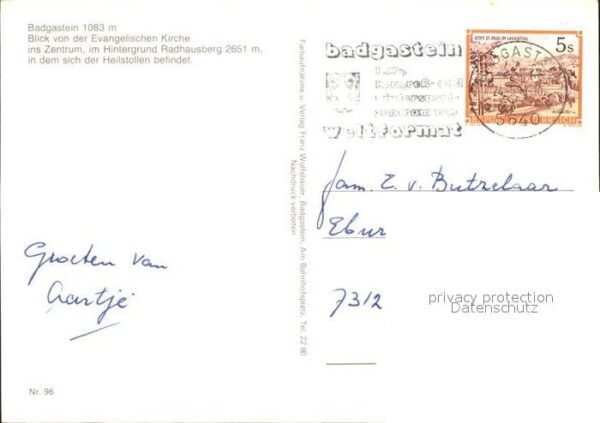 Badgastein 1083 m
Blick von der Evangelischen Kirche
ins Zentrum, im Hintergrund Radhausberg 2651 m,
in dem sich der Heilstollen befindet.
Groeten van
Nr. 96
Farbaufnahme u. Verlag Franz Wolfsbauer, Badgastein, Am Bahnhofsplatz, Tel. 22 80
Nachdruck verboten
badgastein
weltformat
STIFT ST. PAUL IM LAVANTTAL
5 S
5640
Fam. E. v. Butzelaar
Ebur
7312
privacy protection
Datenschutz